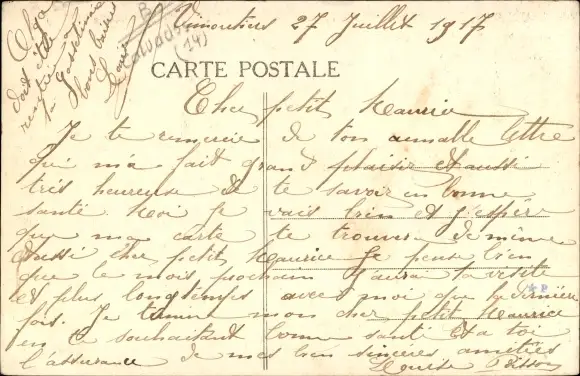 Olga
doit être
rentrée à
la
bons baisers
Louise
CALVADOS
(14)
Vimoutiers 27 Juillet 1917
CARTE POSTALE
Cher petit Maurice
Je te remercie de ton aimable lettre
qui m'a fait grand plaisir et aussi
très heureuse de te savoir en bonne
santé Moi je vais bien et j'espère
que ma carte te trouvera de même
Aussi cher petit Maurice je pense bien
que le mois prochain j'aurai ta visite
et plus longtemps avec moi que la dernière
fois. Je termine mon cher petit Maurice
en te souhaitant bonne santé et a toi
l'assurance de mes bien sincères amitiés
Louise